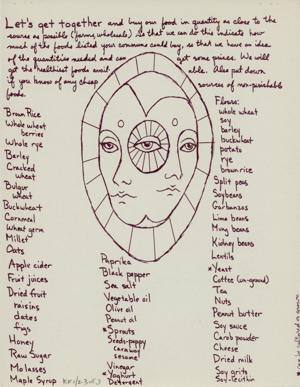 Let's get together and buy our food in quantity as close to the
source as possible (farms, wholesale). So that we can do this indicate how
much of the foods listed your commune could buy, so that we have an idea
of the quantities needed and can get some prices. We will
get the healthiest foods available. Also put down
if you know of any cheap sources of non-perishable
foods.
Brown Rice
Whole wheat
berries
Whole rye
Barley
Cracked
wheat
Bulgur
wheat
Buckwheat
Cornmeal
Wheat germ
Millet
Oats
Apple cider
Fruit juices
Dried fruit
raisins
dates
figs
Honey
Raw Sugar
Molasses
Maple Syrup
Paprika
Black pepper
Sea salt
Vegetable oil
Olive oil
Peanut oil
*Sprouts
Seeds-poppy
caraway
sesame
Vinegar
*Yoghurt
Detergent
Flours:
whole wheat
soy
barley
buckwheat
potato
rye
brown rice
Split peas
Soybeans
Garbanzos
Lima beans
Mung beans
Kidney beans
Lentils
*Yeast
Coffee (un-ground)
Tea
Nuts
Peanut butter
Soy sauce
Carob powder
Cheese
Dried milk
Soy grits
Soy-lecithin